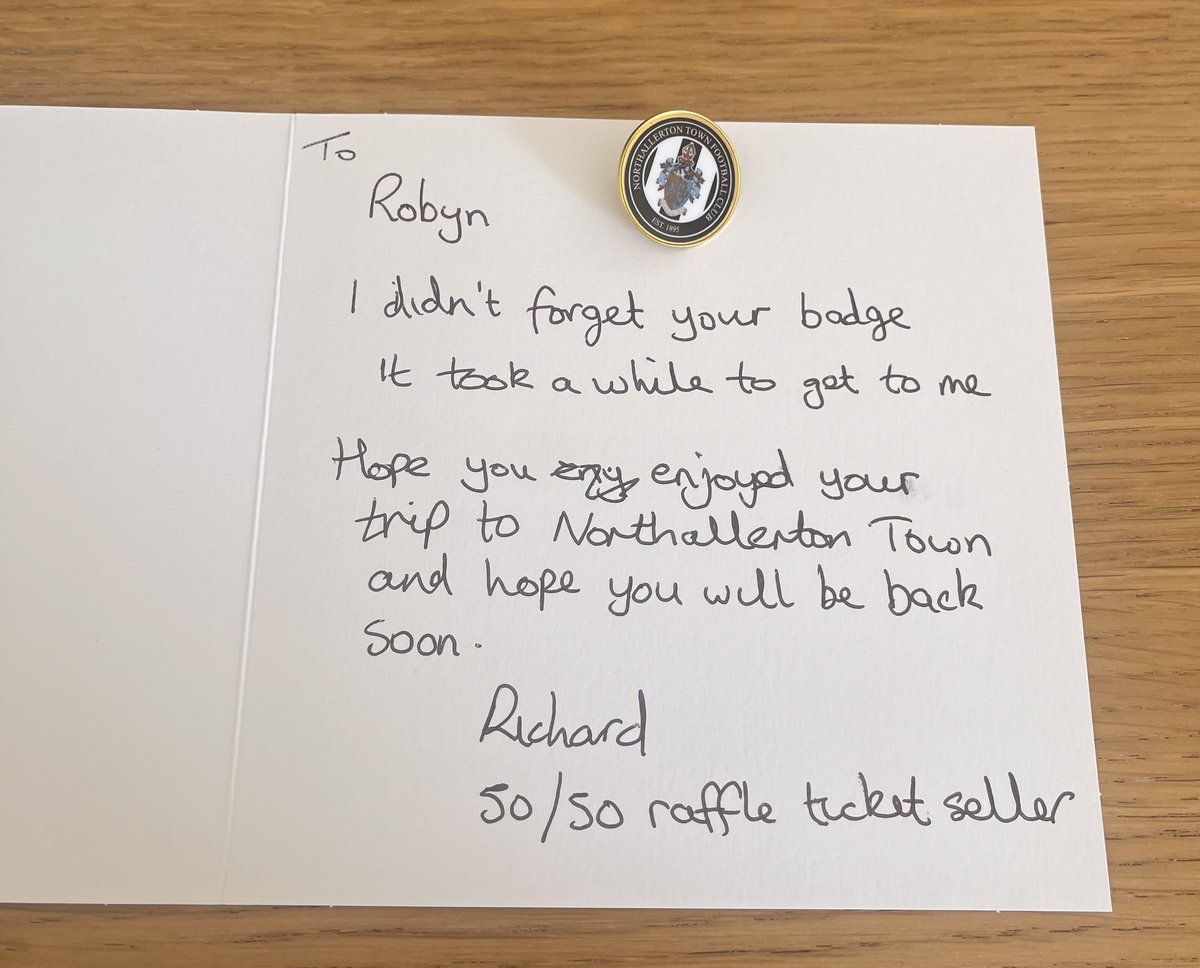 To
Robyn
NORTHALLERTON TOWN FOOTBALL CLUB
EST 1895
I didn't forget your badge
It took a while to get to me
Hope you enjoyed your
trip to Northallerton Town
and hope you will be back
soon.
Richard
50/50 raffle ticket seller